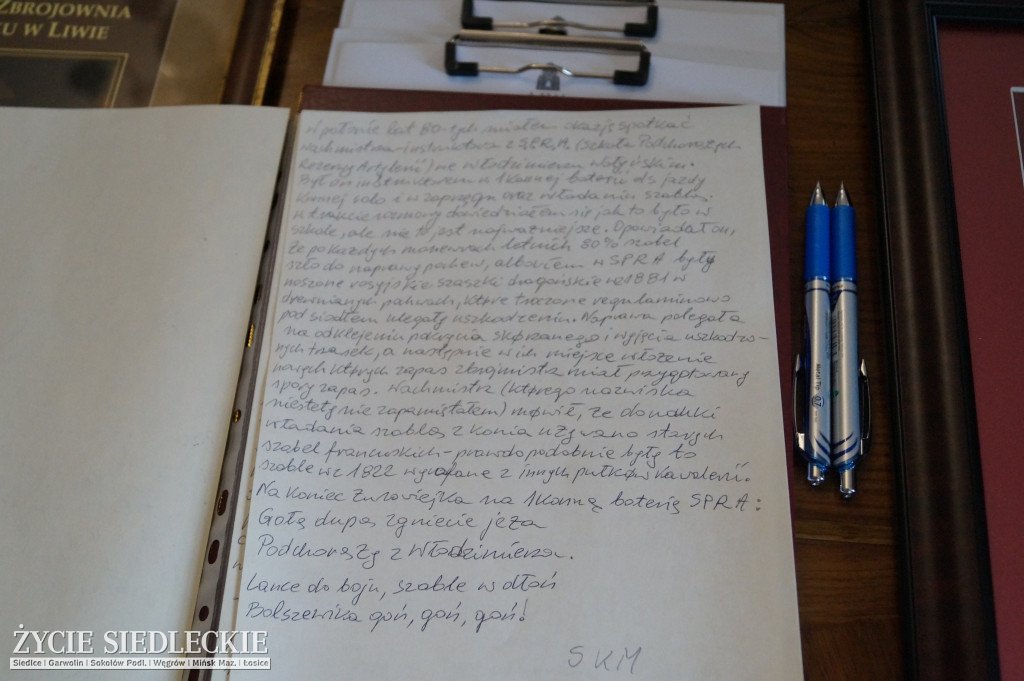 ZBROJOWNIA
W LIWIE
W połowie lat 80-tych miałem okazję spotkać
wachmistrza-instruktora z S.P.R.A. (Szkoła Podchorążych
Rezerwy Artylerii) we Włodzimierzu Wołyńskim.
Był on instruktorem w 1 Konnej baterii ds jazdy
konnej solo i w zaprzęgu oraz władaniu szablą.
W trakcie rozmowy dowiedziałem się jak to było w
szkole, ale nie to jest najważniejsze. Opowiadał on,
że po każdych manewrach letnich 80% szabel
szło do naprawy pochew, albowiem w SPRA były
noszone rosyjskie szaszki dragońskie wz 1881 w
drewnianych pochwach, które troczone regulaminowo
pod siodłem ulegały uszkodzeniu. Naprawa polegała
na odklejeniu pokrycia skórzanego i wyjęciu uszkodzo-
nych trzasek, a następnie w ich miejsce włożenie
nowych których zapas zbrojmistrz miał przygotowany
spory zapas. Wachmistrz (którego nazwiska
niestety nie zapamiętałem) mówił, że do nauki
władania szablą z konia używano starych
szabel francuskich - prawdopodobnie były to
szable wz 1822 wycofane z innych pułków kawalerii.
Na koniec żurawiejka na 1 Konną baterię SPRA:
Gołą dupą zgniecie jeża
Podchorąży z Włodzimierza.
Lance do boju, szable w dłoń
Bolszewika goń, goń, goń!
SKM
ŻYCIE SIEDLECKIE
Siedlce | Garwolin | Sokołów Podl. | Węgrów | Mińsk Maz. | Łosice